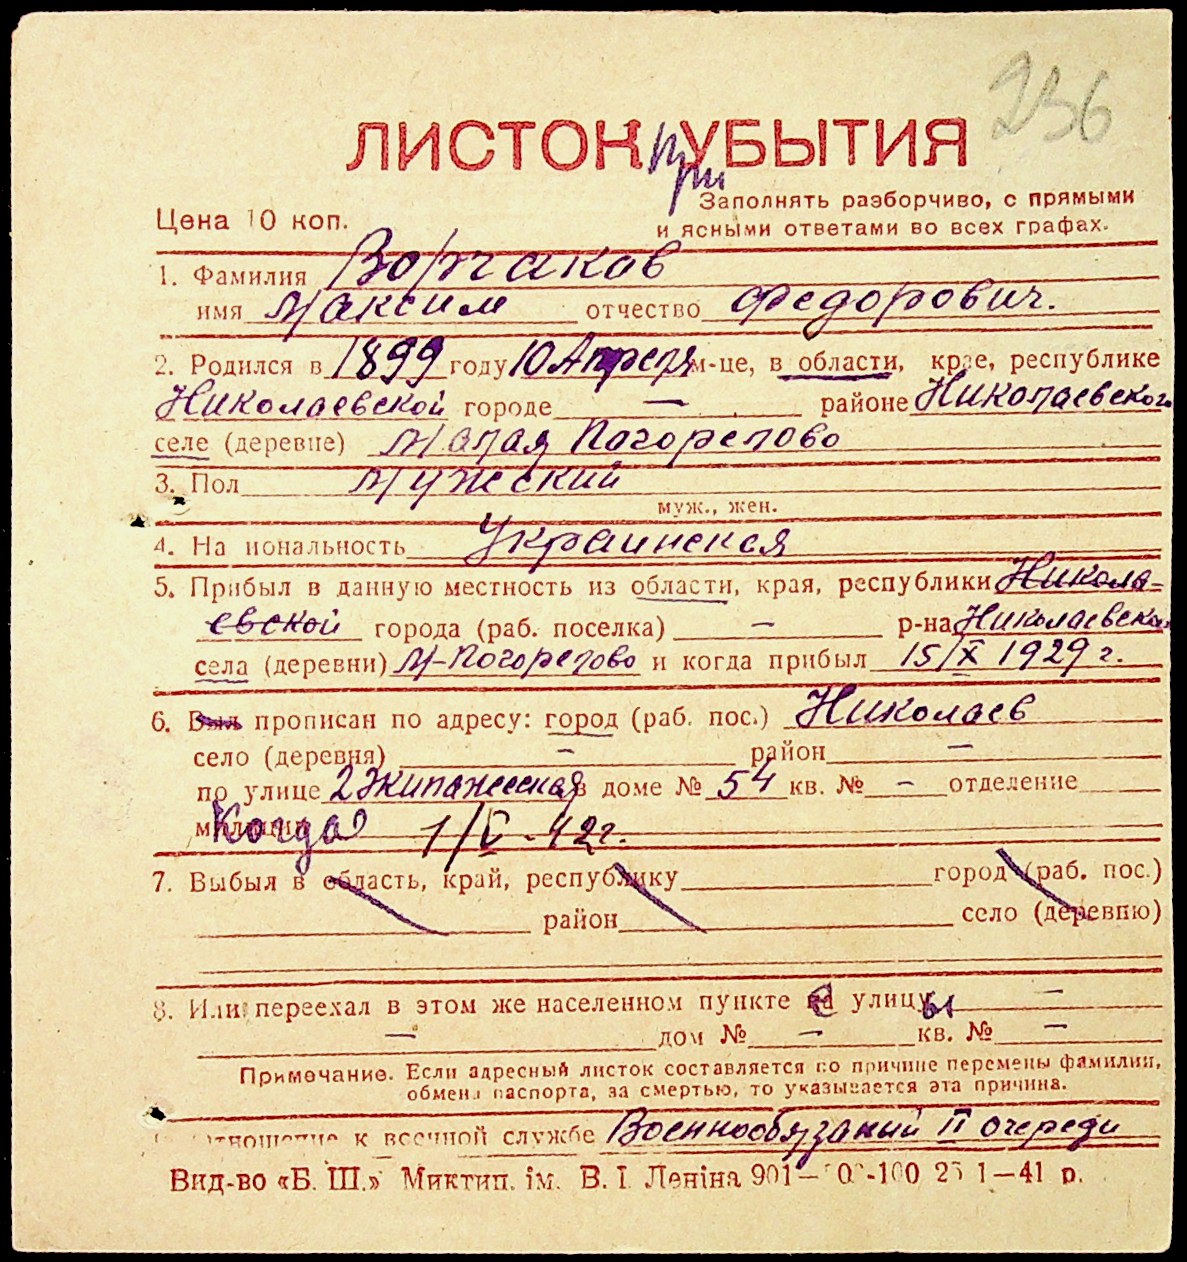 236
ЛИСТОК при УБЫТИЯ
Заполнять разборчиво, с прямыми
Цена 10 коп. и ясными ответами во всех графах.
1. Фамилия Ворчаков
имя Максим отчество Федорович.
2. Родился в 1899 году 10 Апреля м-це, в области, крае, республике
Николаевской городе — районе Николаевского
селе (деревне) Малая Погорелово
3. Пол Мужский
муж., жен.
4. На иональность Украинская
5. Прибыл в данную местность из области, края, республики Никола-
евской города (раб. поселка) — р-на Николаевского
села (деревни) М-Погорелово и когда прибыл 15/X 1929 г.
6. Был прописан по адресу: город (раб. пос.) Николаев
село (деревня) — район —
по улице 2 Экипажеская в доме № 54 кв. № — отделение
милиции Когда 1/V-42 г.
7. Выбыл в область, край, республику город (раб. пос.)
район село (деревню)
8. Или переехал в этом же населенном пункте с улицы —
— дом № — кв. № —
Примечание. Если адресный листок составляется по причине перемены фамилии,
обмена паспорта, за смертью, то указывается эта причина.
Отношение к военной службе Военнообязаный II очереди
Вид-во «Б. Ш.» Миктип. ім. В. І. Леніна 901— 1—41 р.